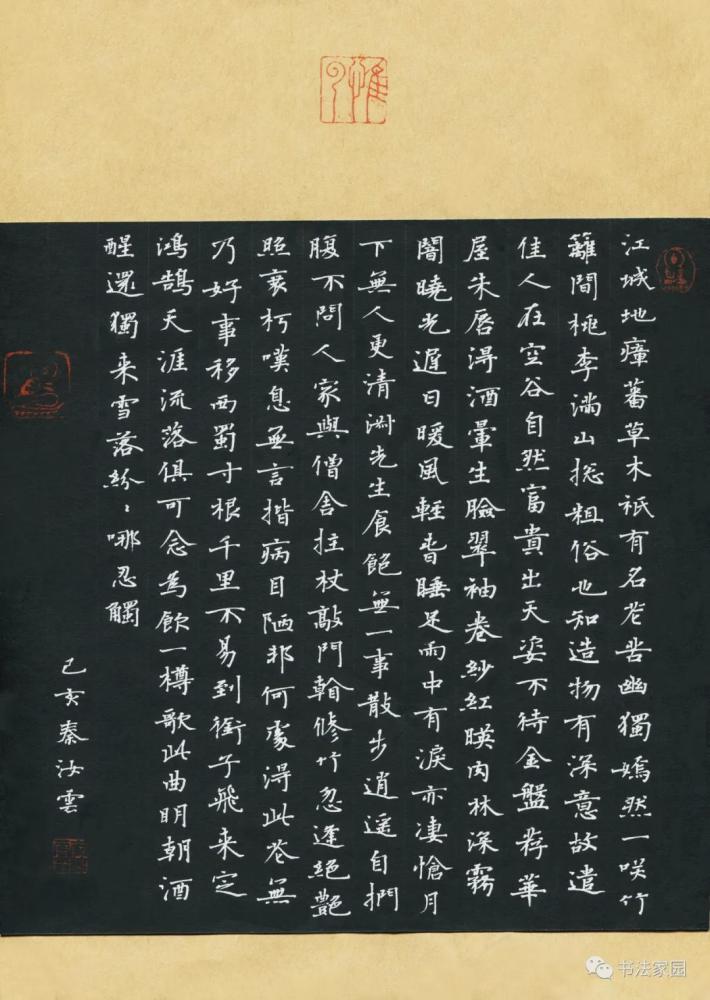 江城地瘴蕃草木祇有名花苦幽獨嫣然一咲竹
籬間桃李滿山捴粗俗也知造物有深意故遣
佳人在空谷自然富貴出天姿不待金盤荐華
屋朱唇得酒暈生臉翠袖卷紗紅暎肉林深霧
闇曉光遲日暖風輕春睡足雨中有淚亦凄愴月
下無人更清淑先生食飽無一事散步逍遥自捫
腹不問人家與僧舍拄杖敲門看修竹忽逢絕艷
照衰朽嘆息無言揩病目陋邦何處得此花無
乃好事移西蜀寸根千里不易到銜子飛来定
鴻鵠天涯流落俱可念為飲一樽歌此曲明朝酒
醒還獨来雪落紛〻哪忍觸
己亥秦汝雲
书法家园